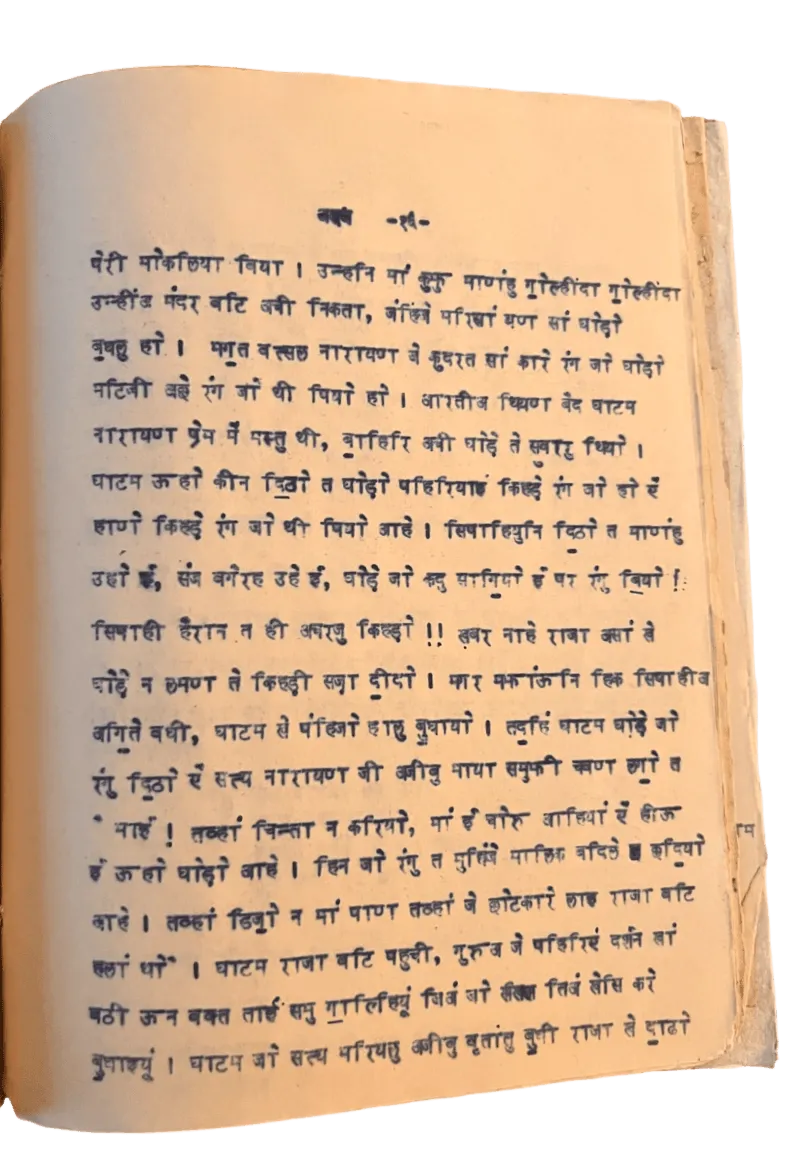 -१६-
पेरी मोकलिया विया । उन्हनि मां कुफु माणहु गो॒ल्हींदा गो॒ल्हींदा
उन्हींअ मंदर वटि अची निकता, जंहिंजे परिसां घण सां घोड़ो
बु॒धलु हो । भगु॒त वत्सल नारायण जे कुदरत सां कारे रंग जो घोड़ो
मटिजी अछे रंग जो थी पियो हो । आरतीअ थियण बैद घाटम
नारायण प्रेम में मस्तु थी, बा॒हिरि अची घोड़े ते सुवारु थियो ।
घाटम ऊहो कीन डि॒ठो त घोड़ो पहिरियाईं किहड़े रंग जो हो ऐं
हाणे किहड़े रंग जो थी पियो आहे । सिपाहियुनि डि॒ठो त माणहु
उहो ई, संज वगेरह उहे ई, घोड़े जो कदु सागि॒यो ई पर रंगु बि॒यो !
सिपाही हैरान त ही अचरजु किहड़ो !! खबर नाहे राजा असां खे
घोड़े न लभण ते किहड़ी सज़ा डी॒दो । मार मफाऊंनि हिक सिपाहीअ
अगि॒ते वधी, घाटम खे पंहिंजो हालु बु॒धायो । तद॒हिं घाटम घोड़े जो
रंगु डि॒ठो ऐं सत्य नारायण जी अजीबु माया समुझी चवण लगो॒ त
" भाई ! तव्हां चिन्ता न करियो, मां ई चोरु आहियां ऐं हीऊ
ई ऊहो घोड़ो आहे । हिन जो रंगु त मुंहिंजे मालिक बदिले छदि॒यो
आहे । तव्हां डिजो॒ न मां पाण तव्हां जे छोटकारे लाइ राजा वटि
हलां थो" । घाटम राजा वटि पहुची, गुरुअ जे पहिरिएं दर्शन खां
वठी ऊन वक्त ताईं समु गा॒ल्हिियूं जिअं जो तिअं खेसि करे
बु॒धाइयूं । घाटम जो सत्य भरियलु अजीबु वृतांतु बु॒धी राजा खे दा॒ढो